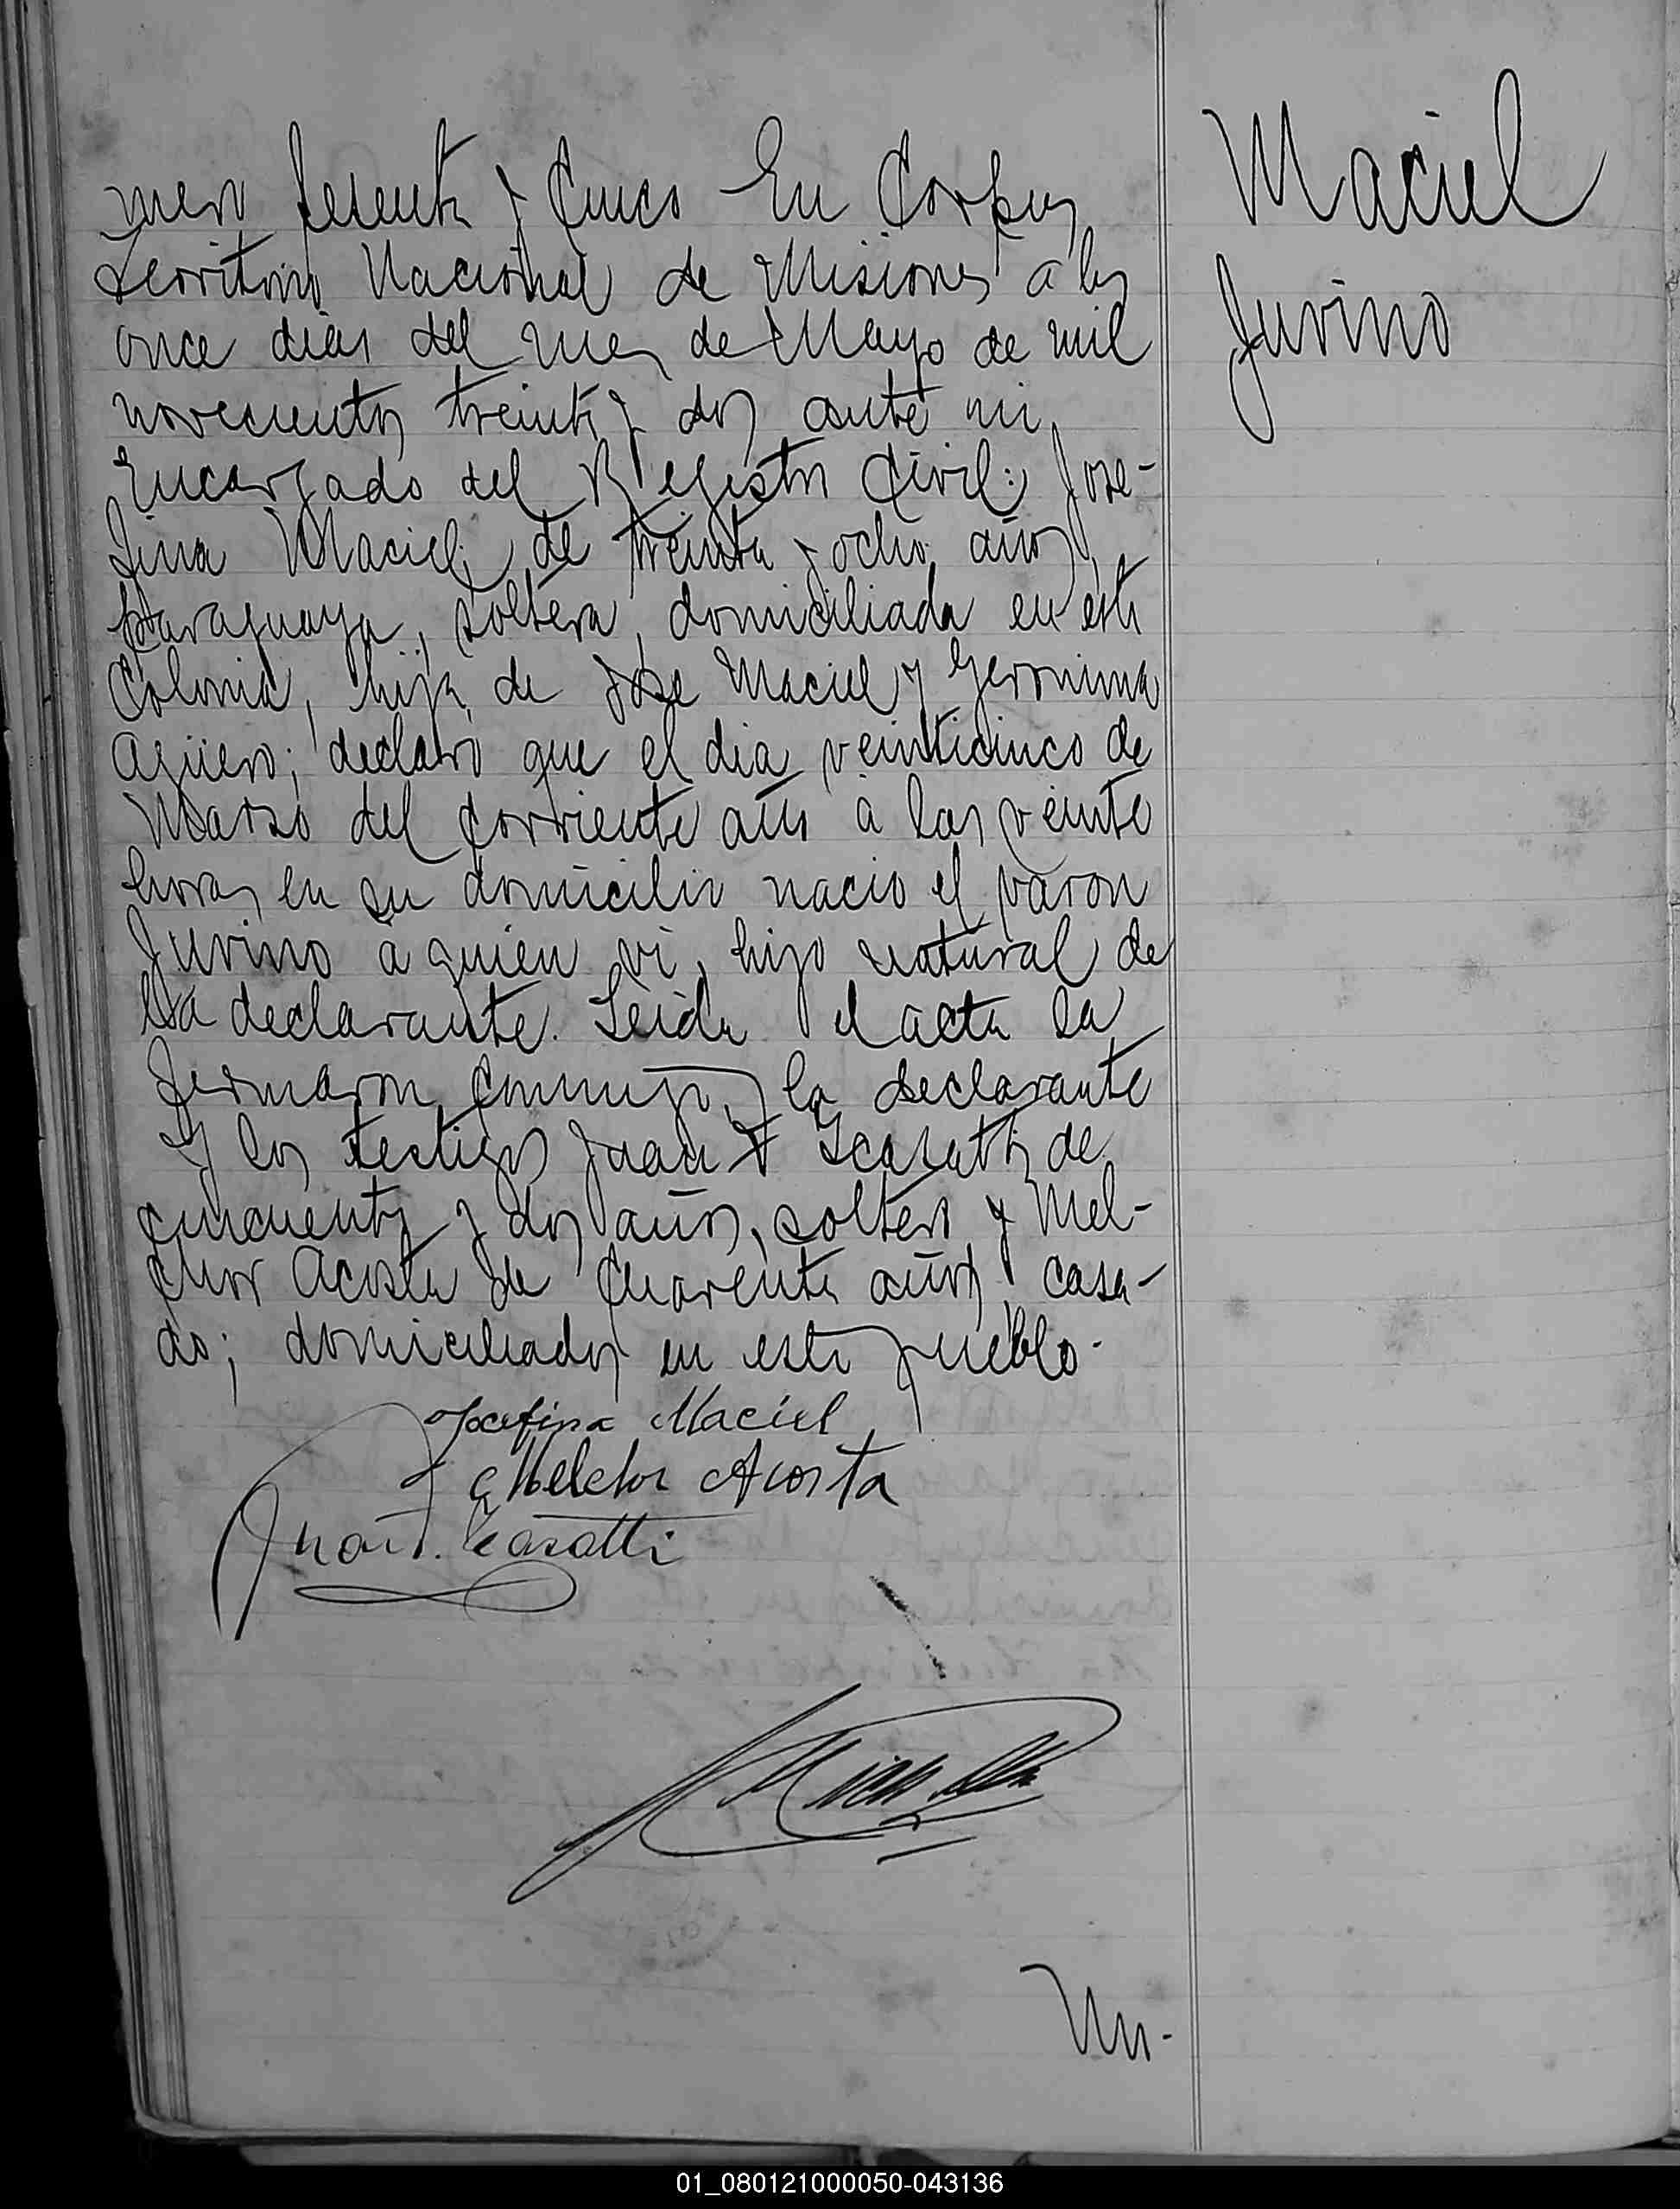 mero sesenta y Cinco En Corpus
Territorio Nacional de Misiones a los
once dias del mes de Mayo de mil
novecientos treinta y dos ante mi
Encargado del Registro Civil: Jose-
fina Maciel, de treinta y ocho años
paraguaya, soltera, domiciliada en esta
Colonia, hija de Jose Maciel y Geronima
Agüero; declaro que el dia veinticinco de
Marzo del corriente año a las veinte
horas en su domicilio nacio el varon
Juvino a quien vi, hijo natural de
la declarante. Leida el acta la
firmaron conmigo, la declarante
y los testigos Juan de
cincuenta y dos años, soltero y Mel-
chor Acosta de cuarenta años casa-
do; domiciliados en este pueblo.
Josefina Maciel
Melchor Acosta
Juan
Nu-
Maciel
Juvino
01_080121000050-043136